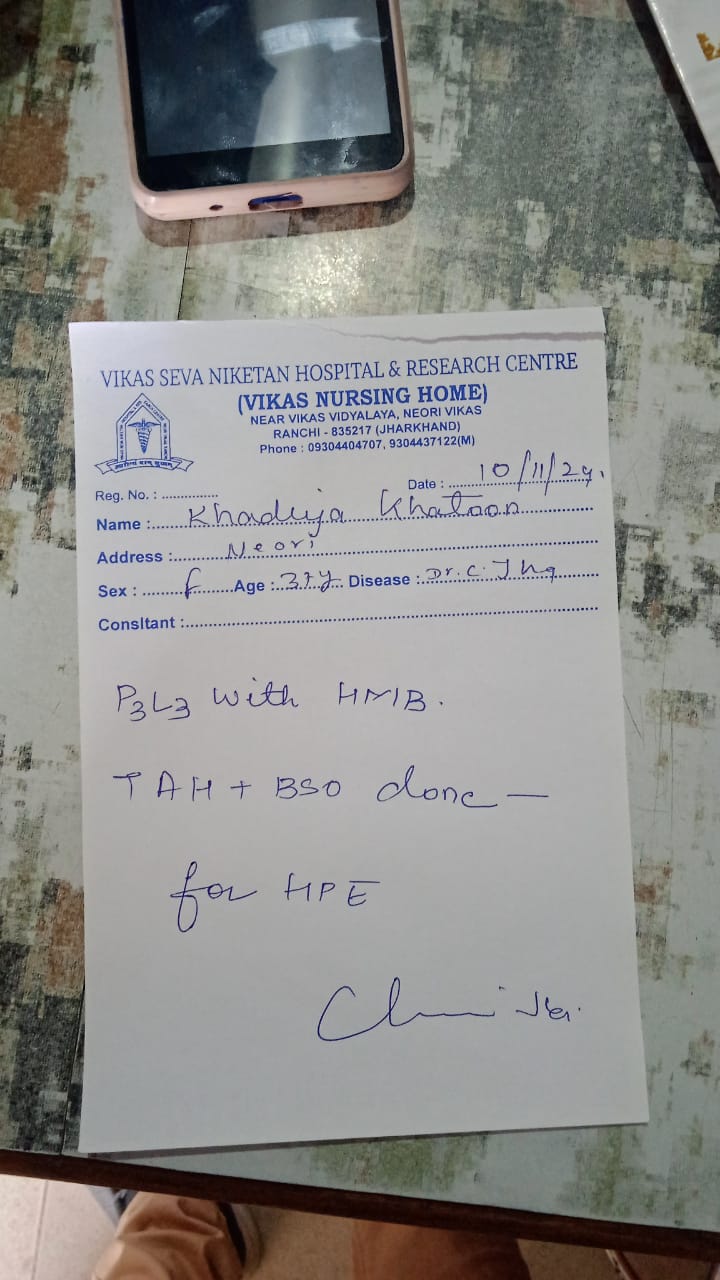 VIKAS SEVA NIKETAN HOSPITAL & RESEARCH CENTRE
(VIKAS NURSING HOME)
NEAR VIKAS VIDYALAYA, NEORI VIKAS
RANCHI - 835217 (JHARKHAND)
Phone : 09304404707, 9304437122(M)
Reg. No. : ............... Date : 10/11/24.
Name : Khadija Khatoon
Address : Neori
Sex : f Age : 37y Disease : Dr. C. Jha
Consltant :
P3L3 with HMB.
TAH + BSO done —
for HPE